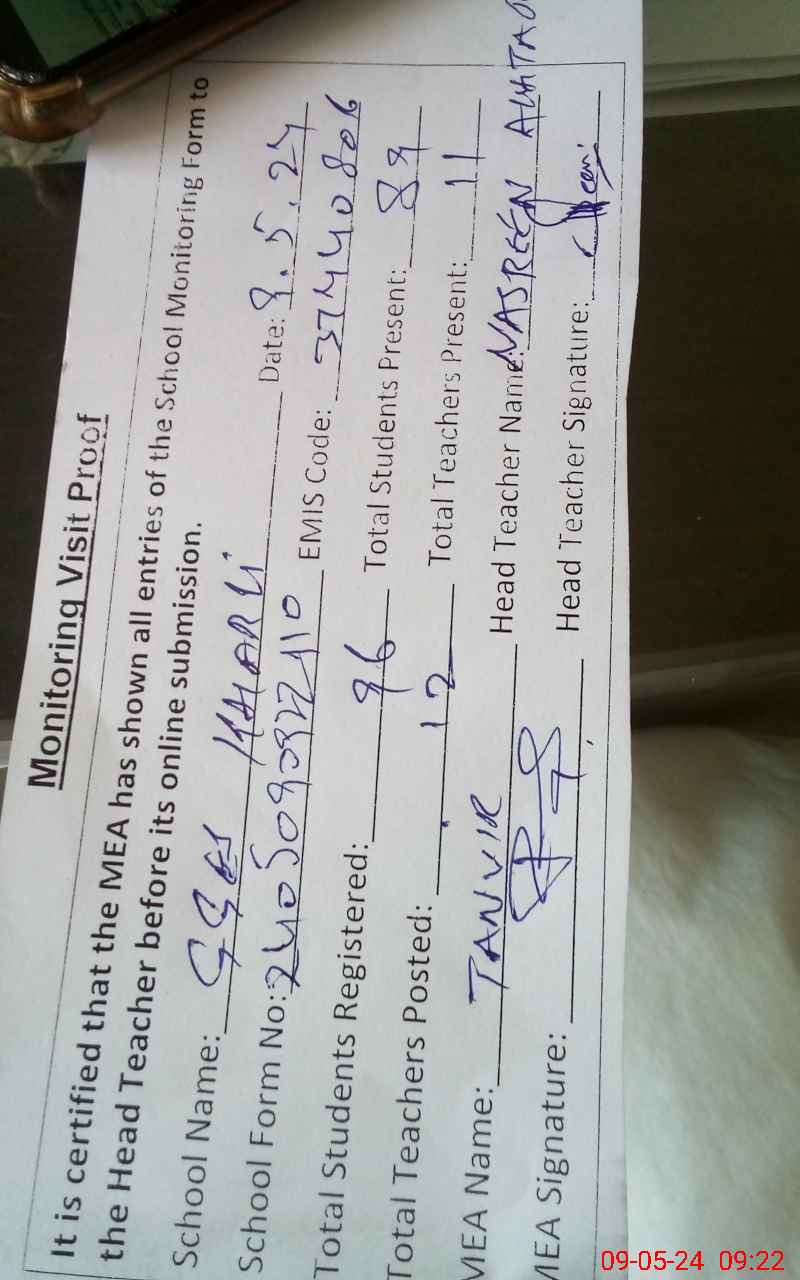 Monitoring Visit Proof
It is certified that the MEA has shown all entries of the School Monitoring Form to
the Head Teacher before its online submission.
School Name: GGES KAHARLI Date: 9.5.24
School Form No: EMIS Code: 37440806
Total Students Registered: 96 Total Students Present: 89
Total Teachers Posted: 12 Total Teachers Present: 11
MEA Name: TANVIR Head Teacher Name: NASREEN
MEA Signature: Head Teacher Signature:
09-05-24 09:22